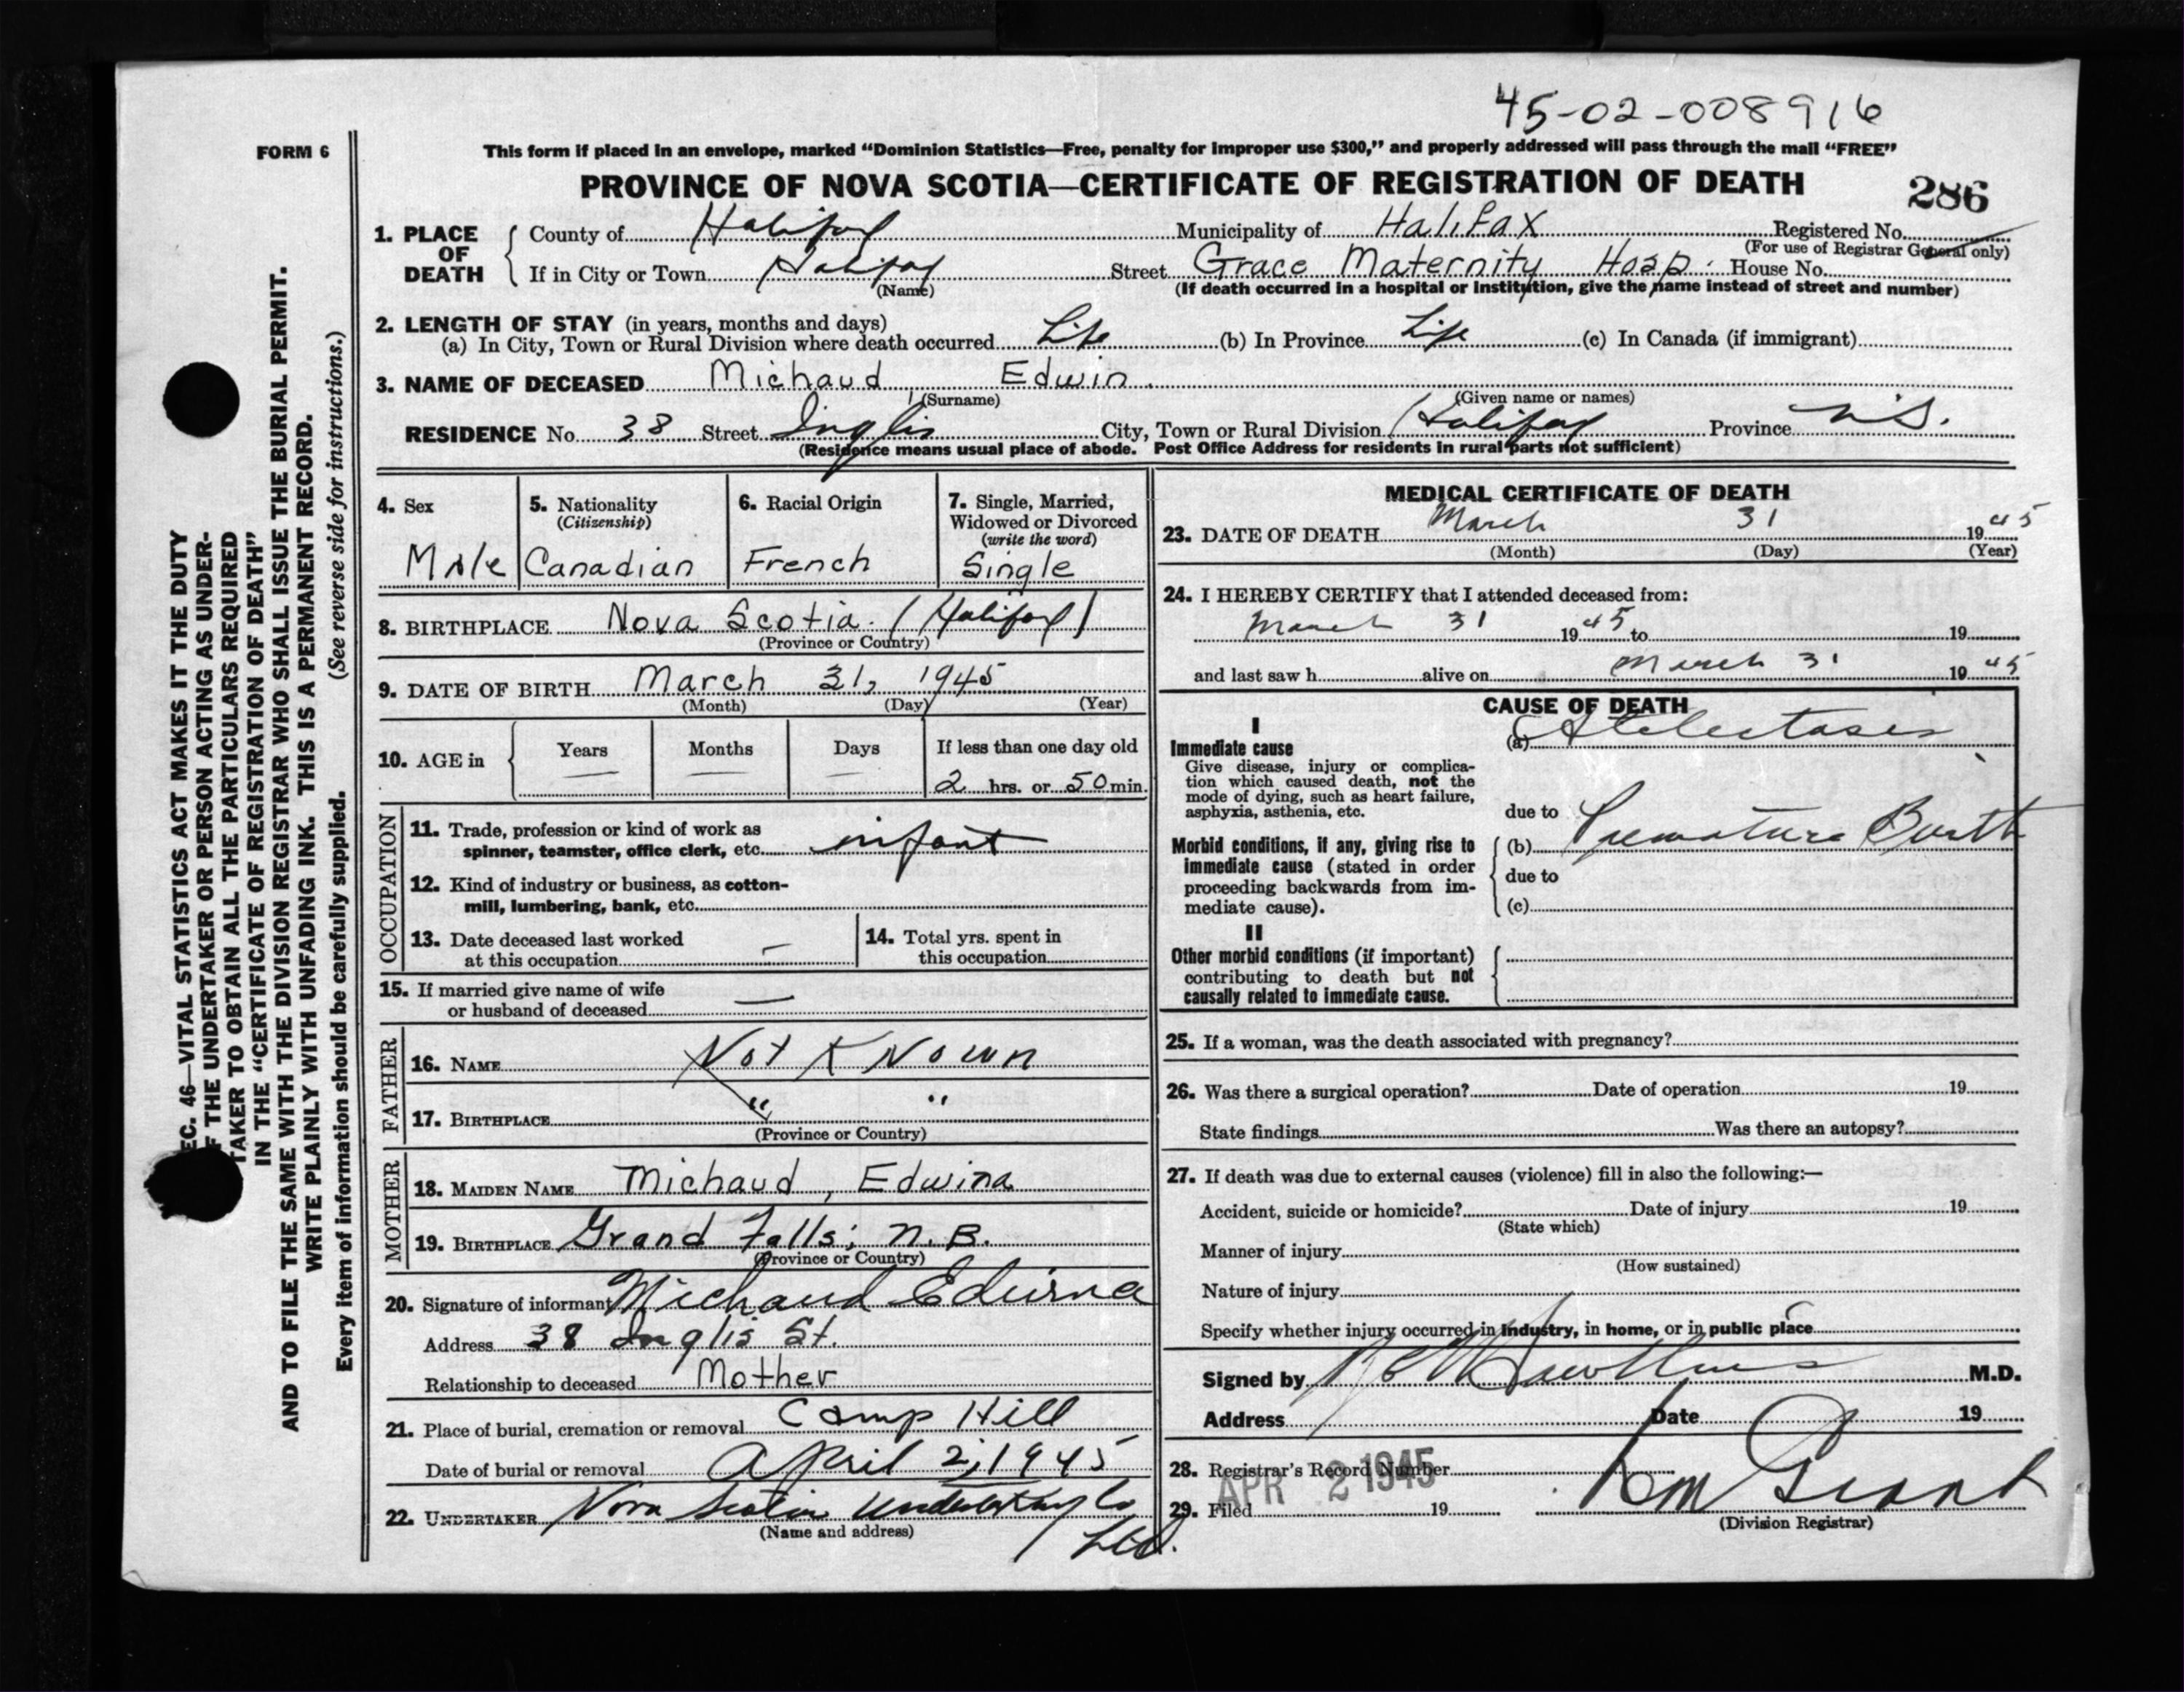 45-02-008916
FORM 6
This form if placed in an envelope, marked “Dominion Statistics—Free, penalty for improper use $300,” and properly addressed will pass through the mail “FREE”
PROVINCE OF NOVA SCOTIA—CERTIFICATE OF REGISTRATION OF DEATH 286
1. PLACE OF DEATH
County of Halifax Municipality of Halifax Registered No.
(For use of Registrar General only)
If in City or Town Halifax Street Grace Maternity Hosp. House No.
(Name) (If death occurred in a hospital or institution, give the name instead of street and number)
2. LENGTH OF STAY (in years, months and days)
(a) In City, Town or Rural Division where death occurred Life (b) In Province Life (c) In Canada (if immigrant)
3. NAME OF DECEASED Michaud, Edwin.
(Surname) (Given name or names)
RESIDENCE No. 38 Street Inglis City, Town or Rural Division Halifax Province N.S.
(Residence means usual place of abode. Post Office Address for residents in rural parts not sufficient)
4. Sex
Male
5. Nationality
(Citizenship)
Canadian
6. Racial Origin
French
7. Single, Married,
Widowed or Divorced
(write the word)
Single
8. BIRTHPLACE Nova Scotia. (Halifax)
(Province or Country)
9. DATE OF BIRTH March 31, 1945
(Month) (Day) (Year)
10. AGE in
Years — Months — Days — If less than one day old
2 hrs. or 50 min.
OCCUPATION
11. Trade, profession or kind of work as
spinner, teamster, office clerk, etc. infant
12. Kind of industry or business, as cotton-
mill, lumbering, bank, etc.
13. Date deceased last worked
at this occupation —
14. Total yrs. spent in
this occupation
15. If married give name of wife
or husband of deceased —
FATHER
16. NAME Not Known
17. BIRTHPLACE " "
(Province or Country)
MOTHER
18. MAIDEN NAME Michaud, Edwina
19. BIRTHPLACE Grand Falls; N.B.
(Province or Country)
20. Signature of informant Michaud Edwina
Address 38 Inglis St.
Relationship to deceased Mother
21. Place of burial, cremation or removal Camp Hill
Date of burial or removal April 2, 1945
22. UNDERTAKER Nova Scotia Undertaking Co
(Name and address)
Ltd.
MEDICAL CERTIFICATE OF DEATH
23. DATE OF DEATH March 31 1945
(Month) (Day) (Year)
24. I HEREBY CERTIFY that I attended deceased from:
March 31 1945 to 19
and last saw h alive on March 31 1945
CAUSE OF DEATH
I
Immediate cause
Give disease, injury or complica-
tion which caused death, not the
mode of dying, such as heart failure,
asphyxia, asthenia, etc.
(a) Atelectasis
due to
Morbid conditions, if any, giving rise to
immediate cause (stated in order
proceeding backwards from im-
mediate cause).
(b) Premature Birth
due to
(c)
II
Other morbid conditions (if important)
contributing to death but not
causally related to immediate cause.
25. If a woman, was the death associated with pregnancy?
26. Was there a surgical operation? Date of operation 19
State findings Was there an autopsy?
27. If death was due to external causes (violence) fill in also the following:—
Accident, suicide or homicide? Date of injury 19
(State which)
Manner of injury
(How sustained)
Nature of injury
Specify whether injury occurred in industry, in home, or in public place
Signed by M.D.
Address Date 19
28. Registrar's Record Number
APR 2 1945
29. Filed 19 Grant
(Division Registrar)
EC. 46—VITAL STATISTICS ACT MAKES IT THE DUTY
F THE UNDERTAKER OR PERSON ACTING AS UNDER-
TAKER TO OBTAIN ALL THE PARTICULARS REQUIRED
IN THE “CERTIFICATE OF REGISTRATION OF DEATH”
AND TO FILE THE SAME WITH THE DIVISION REGISTRAR WHO SHALL ISSUE THE BURIAL PERMIT.
WRITE PLAINLY WITH UNFADING INK. THIS IS A PERMANENT RECORD.
Every item of information should be carefully supplied. (See reverse side for instructions.)